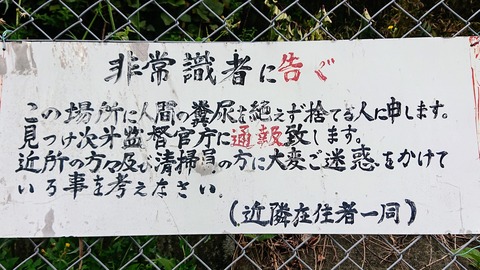 非常識者に告ぐ
この場所に人間の糞尿を絶えず捨てる人に申します。
見つけ次才監督官庁に通報致します。
近所の方々及び清掃員の方に大変ご迷惑をかけて
いる事を考えなさい。
(近隣在住者一同)